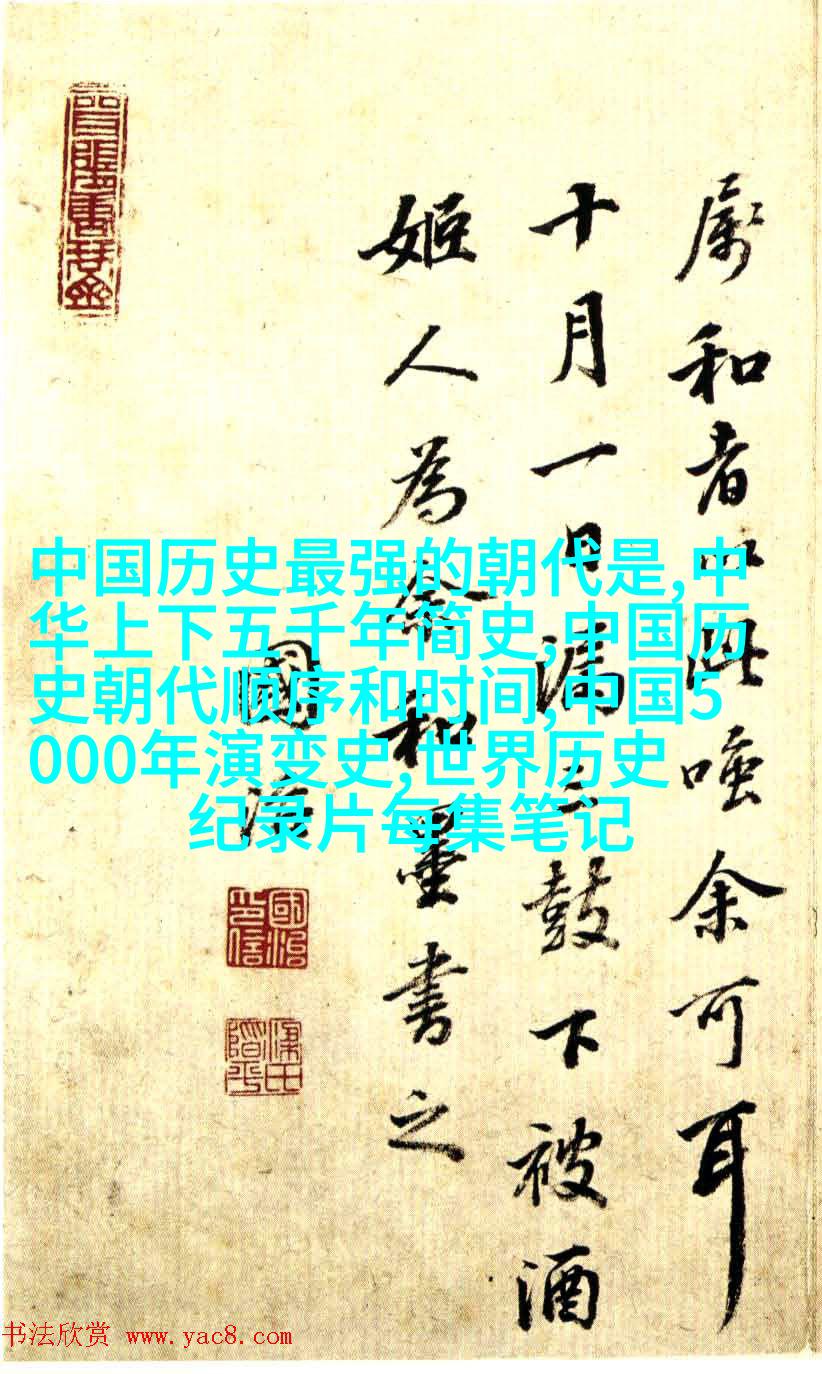 屬和者以此嗤余可耳
十月一日漏三鼓下被酒
姬人為余和墨書之
國治
國治印信
中国历史最强的朝代是,中
华上下五千年简史,中国历
史朝代顺序和时间,中国5
000年演变史,世界历史
纪录片每集笔记
书法欣赏 www.yac8.com